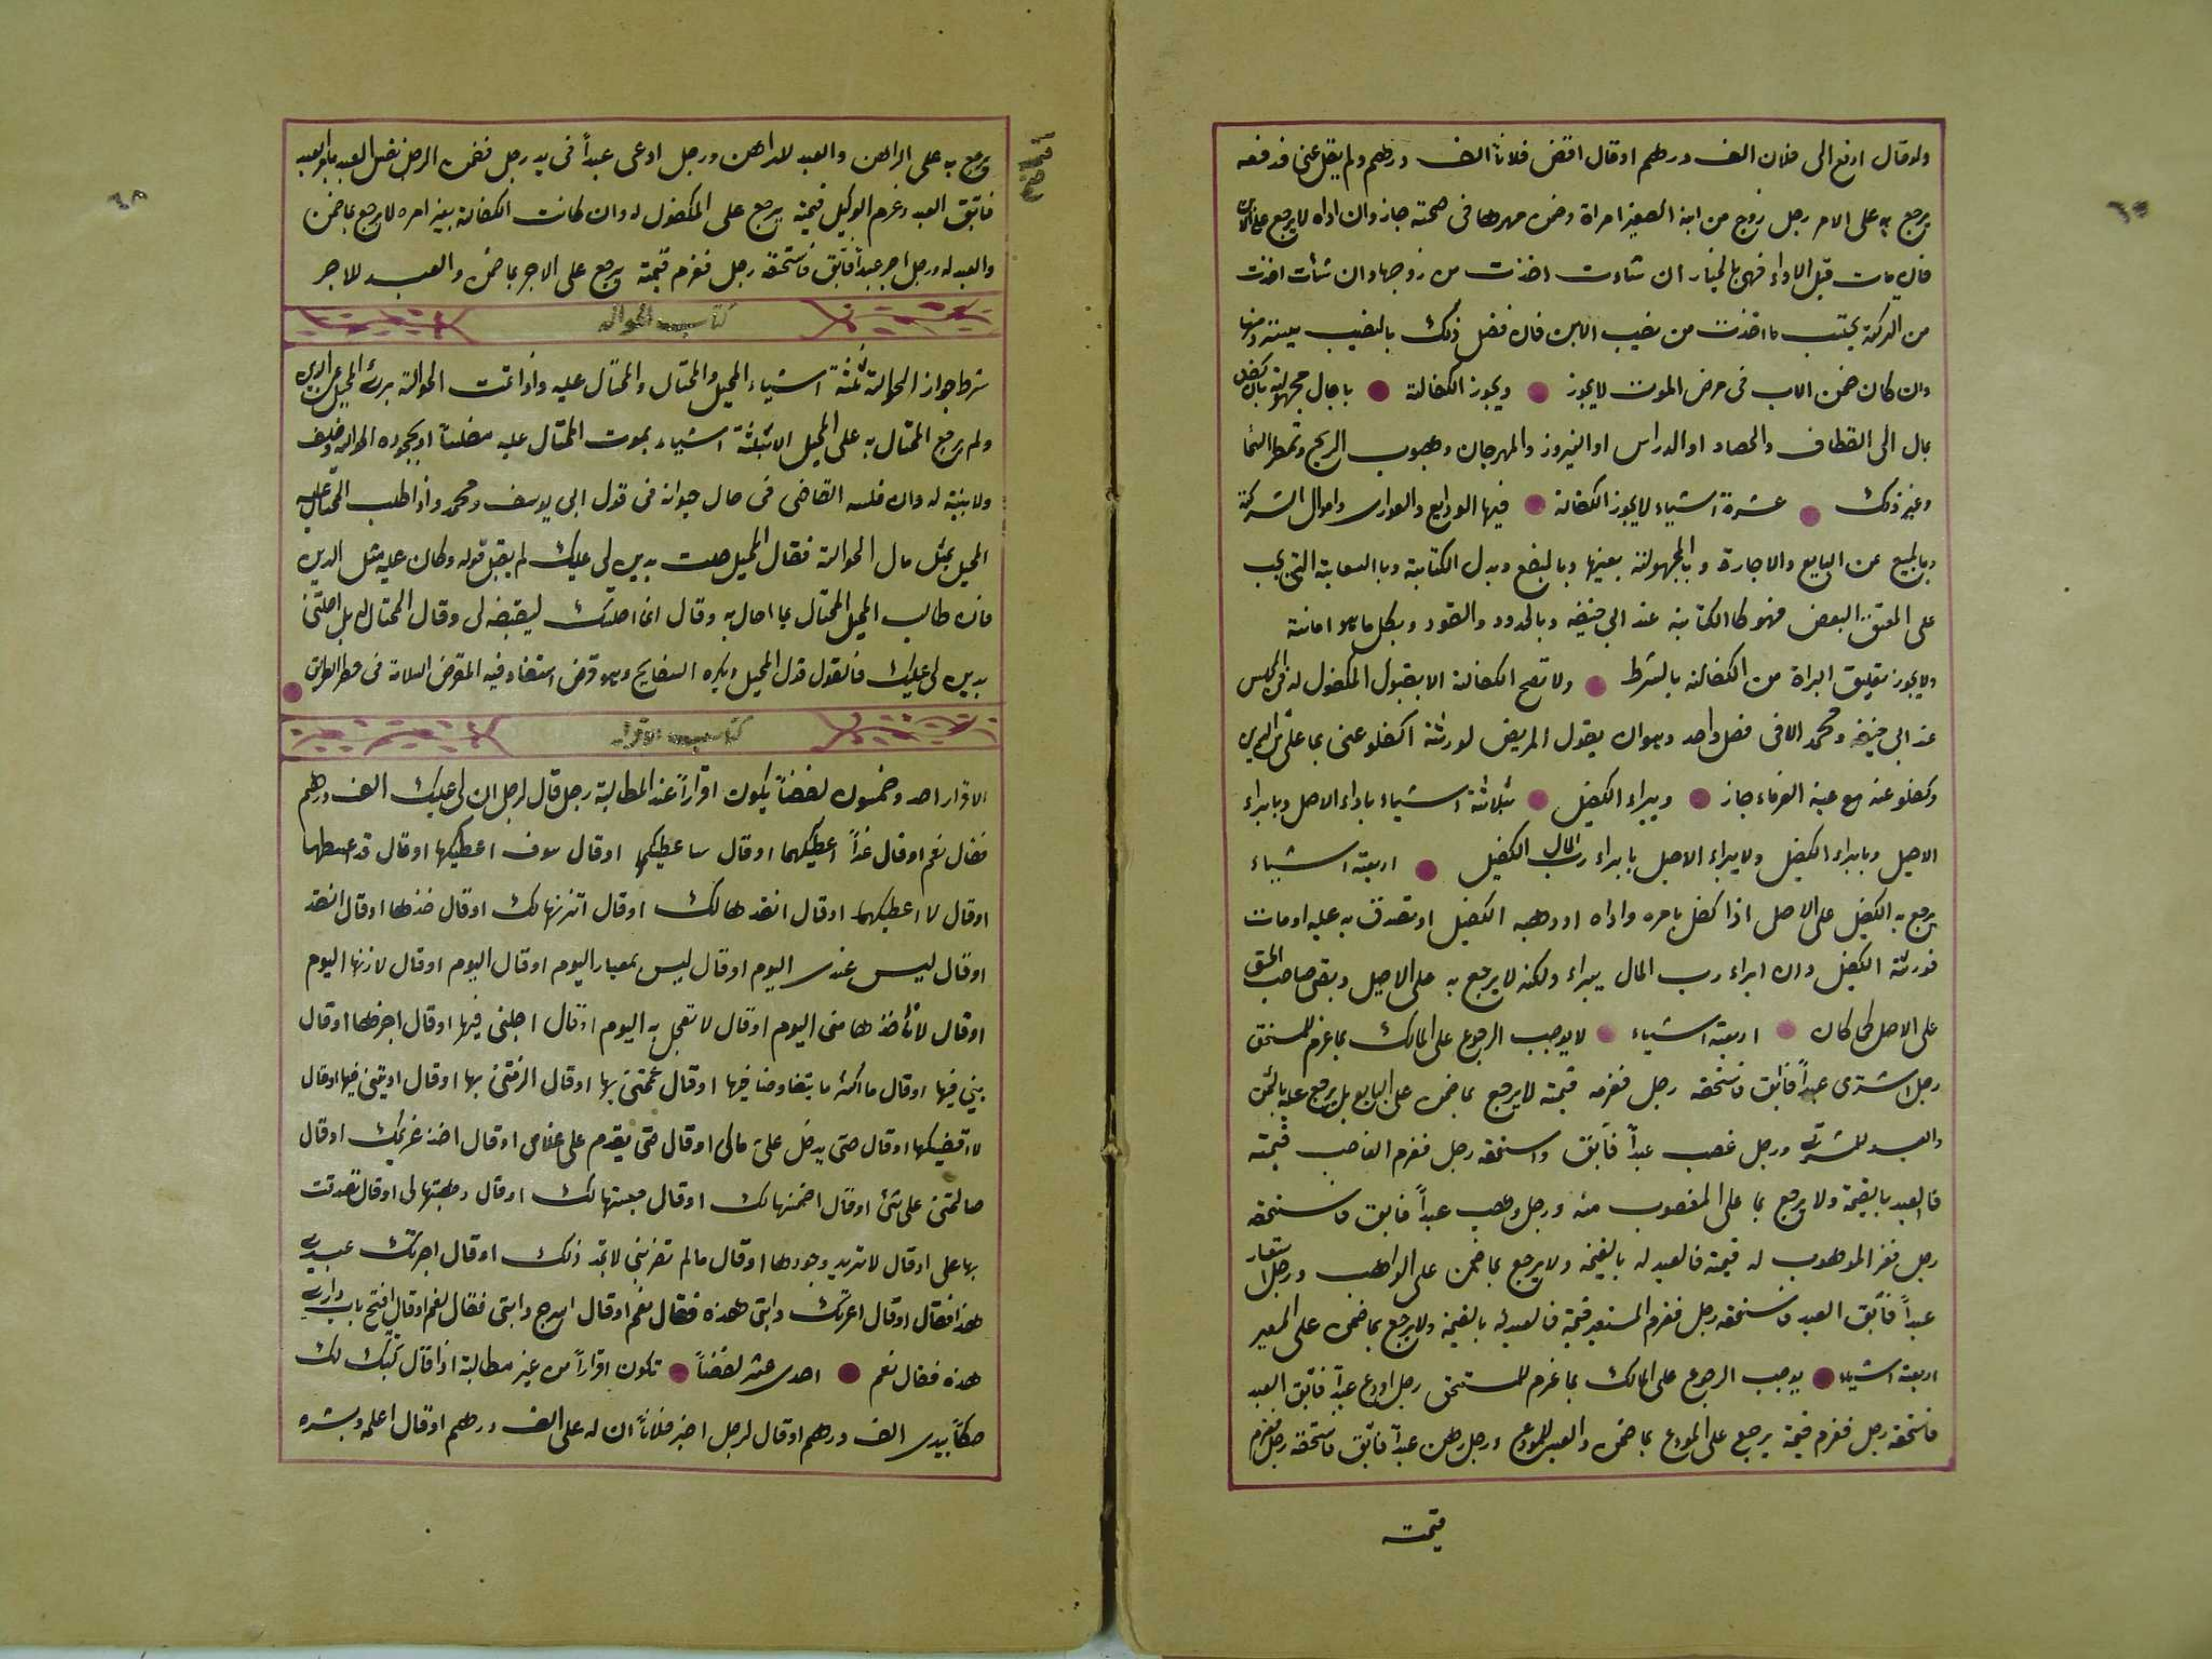 ولو قال ادفع الى فلان الف درهم او قال اقض فلاناً الف درهم ولم يقل عنى فدفعه
يرجع به على الامر رجل زوج من ابنه الصغير امراة وضمن مهرها فى صحته جاز وان اداه لا يرجع على الابن
فان مات قبل الاداء فهى بالخيار ان شاءت اخذت من زوجها وان شأت اخذت
من التركة يحتسب ما اخذت من نصيب الابن فان فضل ذلك بالنصيب
وان كان ضمن الاب فى مرض الموت لا يجوز ويجوز الكفالة باجال مجهولة بان كفل
بمال الى القطاف والحصاد او الدراس او النيروز والمهرجان وهبوب الريح وتمطر السما
وغير ذلك عشرة اشياء لا يجوز الكفالة فيها الودايع والعوارى واموال الشركة
وبالمبيع عن البايع والاجارة وبالمجهولة بعينها وبالبضع وبدل الكتابة وبالسعاية التى يجب
على المعتق البعض فهو كالكتابة عند ابى حنيفه وبالحدود والقصود وبكل ما هو امانة
ولا يجوز تعليق البراة من الكفالة بالشرط ولا تصح الكفالة الا بقبول المكفول له فى المجلس
عند ابى حنيفه ومحمد الا فى فصل واحد وهو ان يقول المريض لورثته اكفلو عنى بما على من الدين
وكفلو عنه مع غيبة الغرماء جاز ويبراء الكفيل بثلاثة اشياء باداء الاصل وبابراء
الاصيل وبابراء الكفيل ولا يبراء الاصيل بابراء رب المال الكفيل اربعة اشياء
يرجع به الكفيل على الاصل اذا كفل بامره واداه او وهبه الكفيل او تصدق به عليه او مات
فورثته الكفيل وان ابراء رب المال يبراء ولكنه لا يرجع به على الاصيل وبقى صاحب الحق
على الاصل كما كان اربعة اشياء لا يوجب الرجوع على المالك بما غرم للمستحق
رجل اشترى عبداً فابق فاستحقه رجل فغرمه قيمته لا يرجع بما ضمن على البايع بل يرجع عليه بالثمن
والعبد للمشترى ورجل غصب عبداً فابق واستحقه رجل فغرم الغاصب قيمته
فالعبد بالقيمة ولا يرجع بما على المغصوب منه ورجل وهب عبداً فابق فاستحقه
رجل فغرم الموهوب له قيمته فالعبد له بالقيمة ولا يرجع بما ضمن على الواهب ورجل استعار
عبداً فابق العبد فاستحقه رجل فغرم المستعير قيمة فالعبد له بالقيمة ولا يرجع بما ضمن على المعير
اربعة اشياء يوجب الرجوع على المالك بما غرم للمستحق رجل اودع عبداً فابق العبد
فاستحقه رجل فغرم قيمة يرجع على المودع بما ضمن والعبد للمودع ورجل رهن عبداً فابق فاستحقه رجل فغرم
قيمته
ويرجع به على الراهن والعبد للراهن ورجل ادعى عبداً فى يد رجل فضمن الرجل
فابق العبد وغرم الوكيل قيمته يرجع على المكفول له وان كانت الكفالة بغير امره لا يرجع بما ضمن
والعبد له ورجل اجر عبداً فابق فاستحقه رجل فغرم قيمته يرجع على الاجر بما ضمن والعبد للاجر
كتاب الحواله
شرط جواز الحوالة ثلثة اشياء المحيل والمحتال والمحتال عليه واذا تمت الحوالة برئ المحيل عن الدين
ولم يرجع المحتال به على المحيل الا بثلثة اشياء بموت المحتال عليه مفلساً او بجحوده الحواله وحلف
ولا بينة له وان فلسه القاضى فى حال حيوته فى قول ابى يوسف ومحمد واذا طلب المحتال عليه
المحيل بمثل مال الحوالة فقال المحيل احلت بدين لى عليك لم يقبل قوله وكان عليه مثل الدين
فان طالب المحيل المحتال بما احال به وقال انما احلتك ليقبضه لى وقال المحتال له بل احلتنى
بدين لى عليك فالقول قول المحيل ويكره السفايج وهو قرض استفاد فيه المقرض السلامة فى خطر الطريق
كتاب الاقرار
الاقرار احد وخمسون لفظاً يكون اقراراً عند المطالبة رجل قال لرجل ان لى عليك الف درهم
فقال نعم او قال غداً اعطيكهما او قال ساعطيكها او قال سوف اعطيكها او قال قد اعطيتها
او قال لا اعطيكهما او قال انقدها لك او قال اتزنها لك او قال خذها او قال انقد
او قال ليس عندى اليوم او قال ليس بمعيار اليوم او قال اليوم او قال لازنها اليوم
او قال لا تأخذها منى اليوم او قال لا تعجل به اليوم او قال اجلنى فيها او قال اخرها او قال
بينى فيها او قال ما اكثر ما يتقاضا فيها او قال غممتنى بها او قال الزمتنى بها او قال اذيتنى فيها او قال
لا اقضيكها او قال حتى يدخل على مالى او قال حتى يقدم على غلامى او قال اخذ غريمك او قال
صالحتنى على شئ او قال اضمنها لك او قال حبستها لك او قال وهبتها لى او قال تصدقت
بها على او قال لا تريد وجودها او قال ما لم تضربنى لا تجد ذلك او قال اجرتك عبدى
هذا فقال او قال اعرتك دابتى هذه فقال نعم او قال اسرج دابتى فقال نعم او قال افتح باب دارى
هذه فقال نعم احدى عشر لفظاً تكون اقراراً من غير مطالبة اذا قال كتبت لك
صكاً بيدى الف درهم او قال لرجل اخبر فلاناً ان له على الف درهم او قال اعلمه وبشره